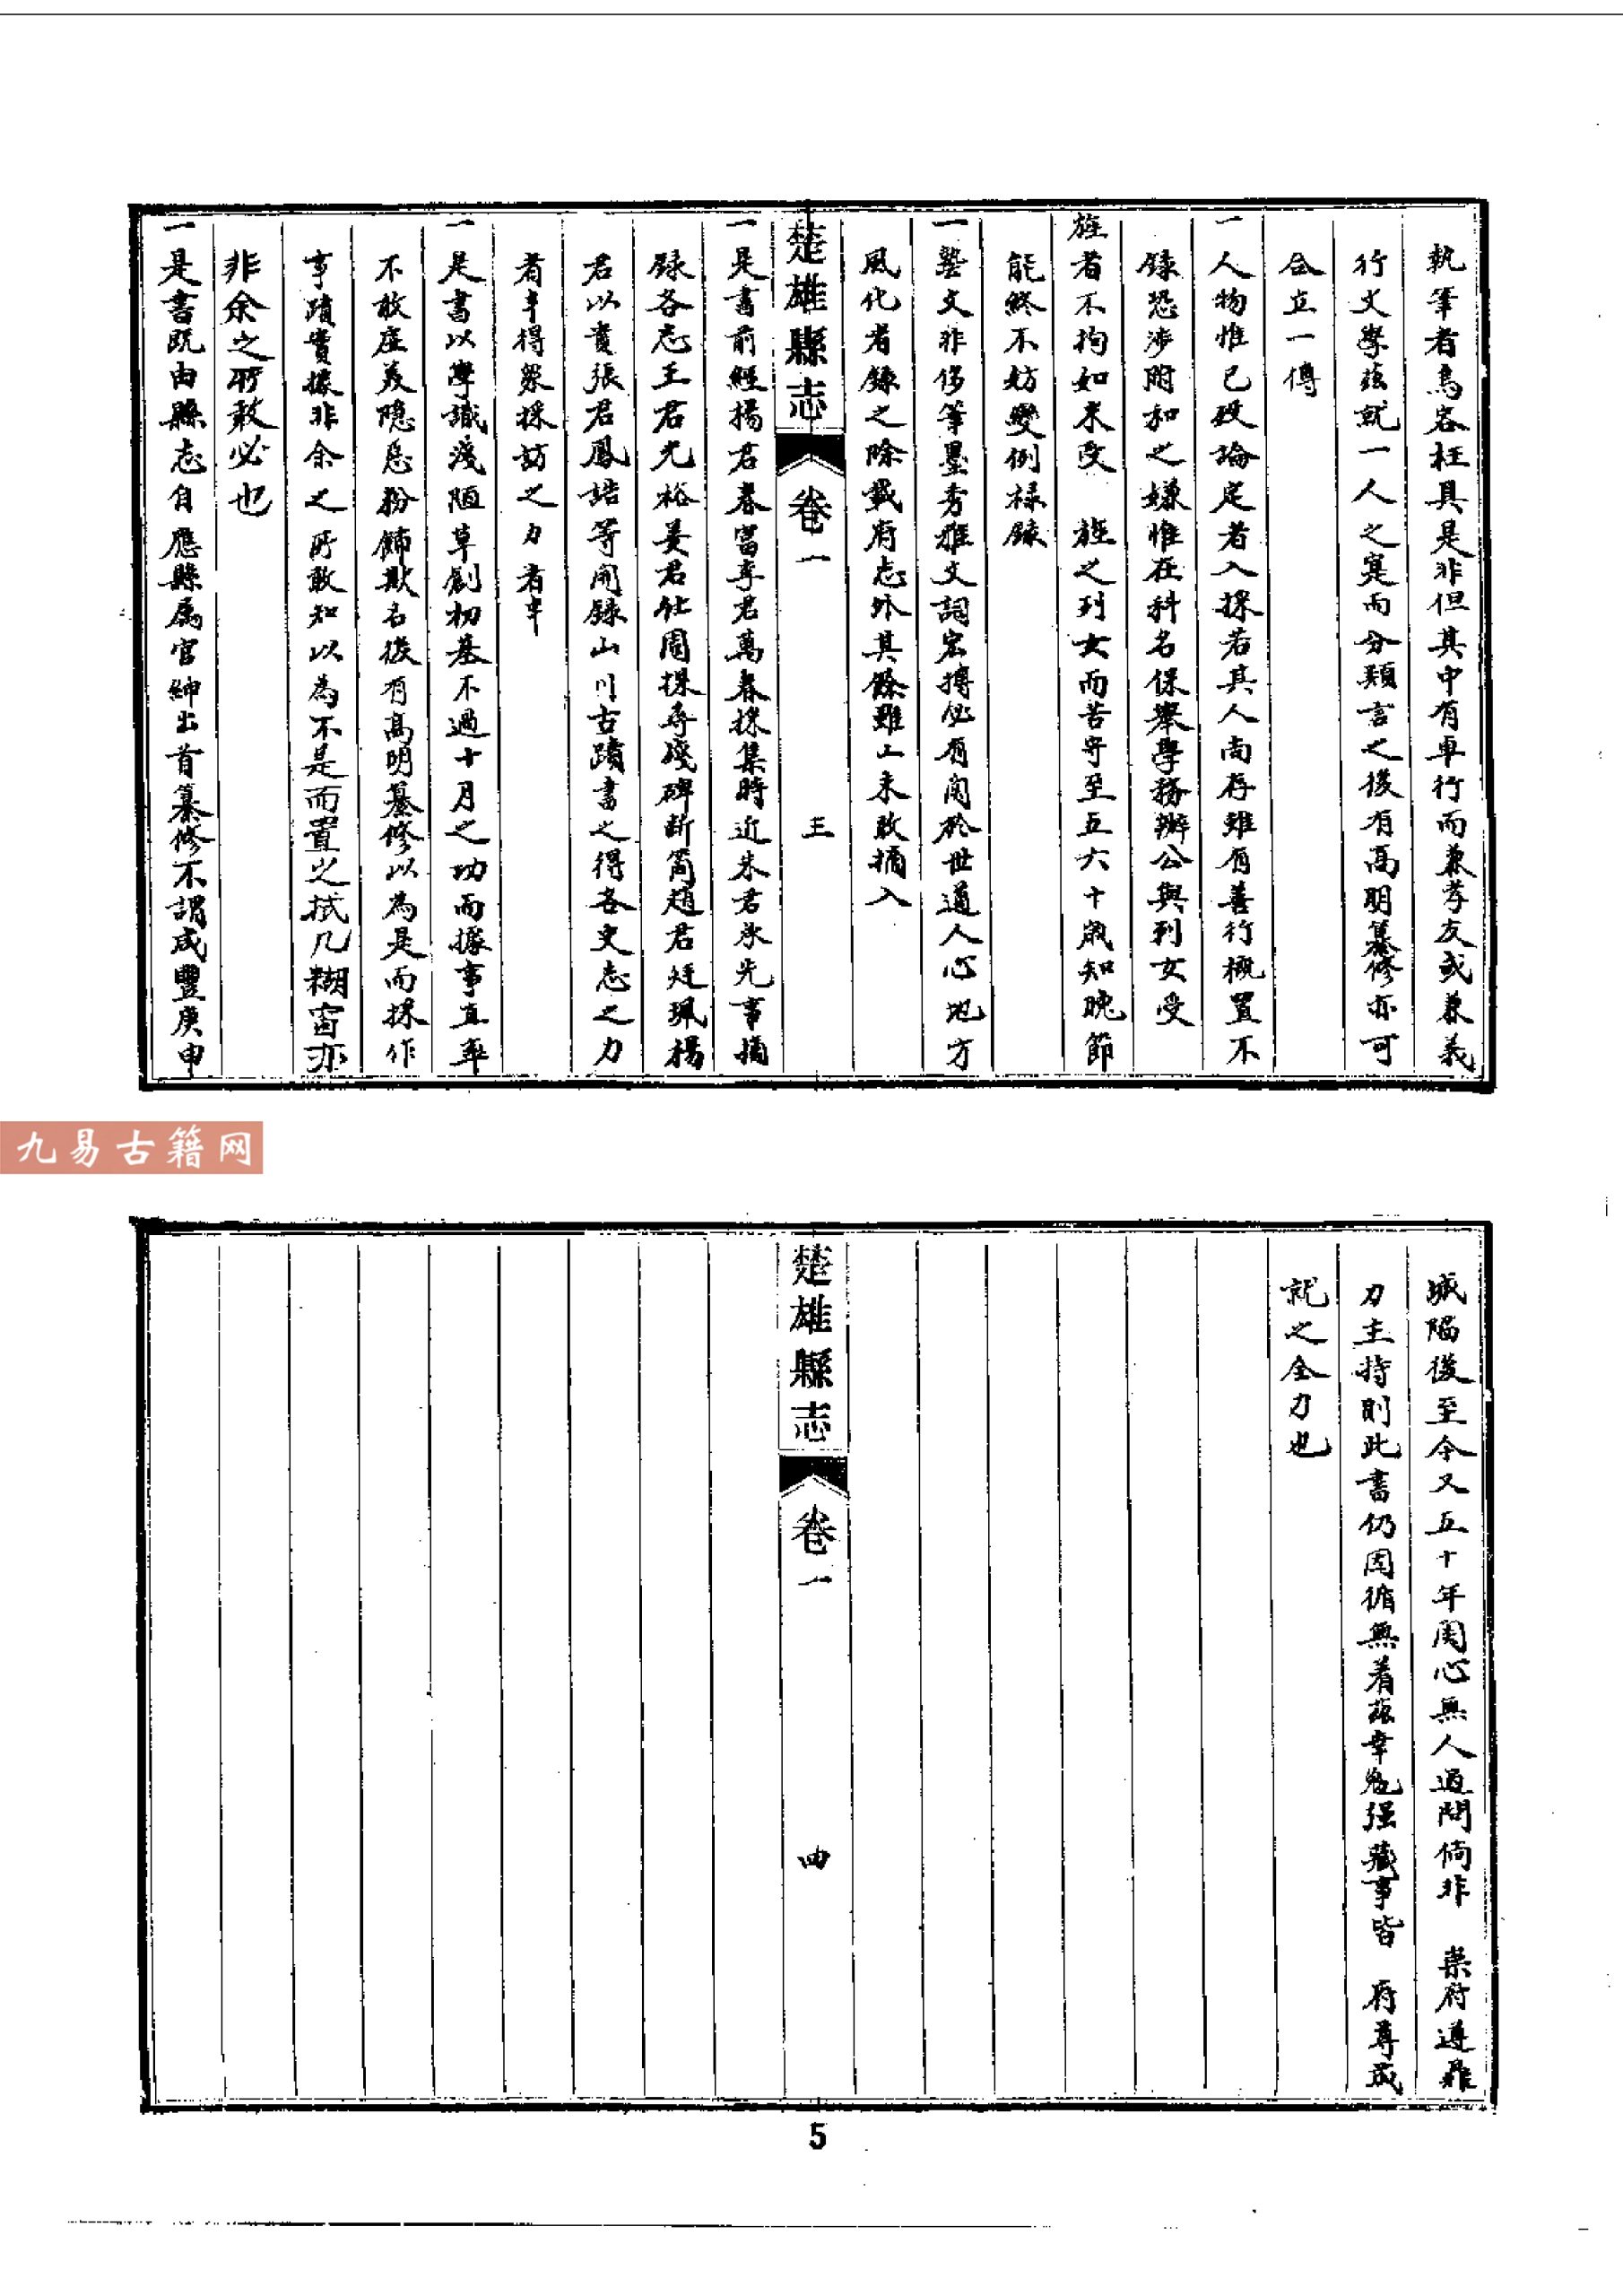 執筆者烏容枉其是非但其中有專行而兼孝友或兼義
行文學茲就一人之寔而分類言之後有高明纂修亦可
合立一傳
一人物惟已歿論定者入採若其人尚存雖有善行概置不
錄恐涉附和之嫌惟在科名保舉學務辦公與列女受
旌者不拘如未受 旌之列女而苦守至五六十歲知晚節
能終不妨變例採錄
一藝文非侈筆墨秀雅文詞宏博必有關於世道人心地方
風化者錄之除載府志外其餘雖工未敢摘入
楚雄縣志 卷一 三
一是書前經楊君春富李君萬春採集時近朱君 先事摘
錄各志王君光裕姜君仕周採尋殘碑斷簡趙君廷珮楊
君以貴張君鳳誥等開錄山川古蹟書之得各史志之力
者半得眾採訪之力者半
一是書以學識淺陋草創初基不過十月之功而據事直率
不敢虛美隱惡粉飾欺名後有高明纂修以為是而採作
事蹟實據非余之所敢知以為不是而置之拭几糊窗亦
非余之所敢必也
一是書既由縣志自應縣屬官紳出首纂修不謂咸豐庚申
九易古籍网
城陷後至今又五十年周心無人過問倘非 崇府遵鼐
力主持則此書仍因循無着茲幸勉强蕆事皆 府尊成
就之全力也
楚雄縣志 卷一 四
5